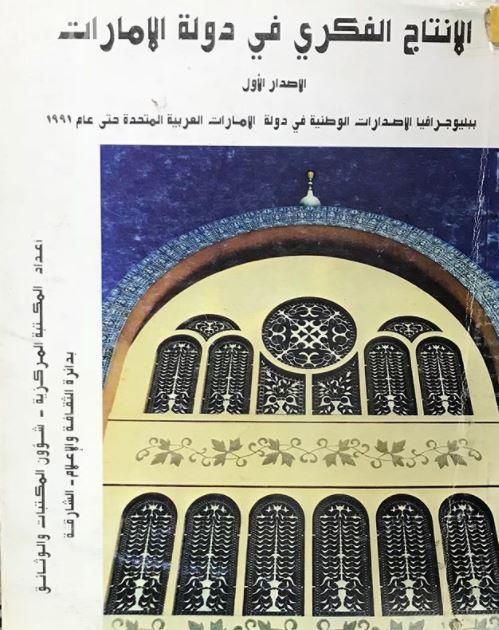 الإنتاج الفكري في دولة الإمارات
الإصدار الأول
ببليوجرافيا الإصدارات الوطنية في دولة الإمارات العربية المتحدة حتى عام ١٩٩١
اعداد المكتبة المركزية - شؤون المكتبات والوثائق
بدائرة الثقافة والإعلام - الشارقة